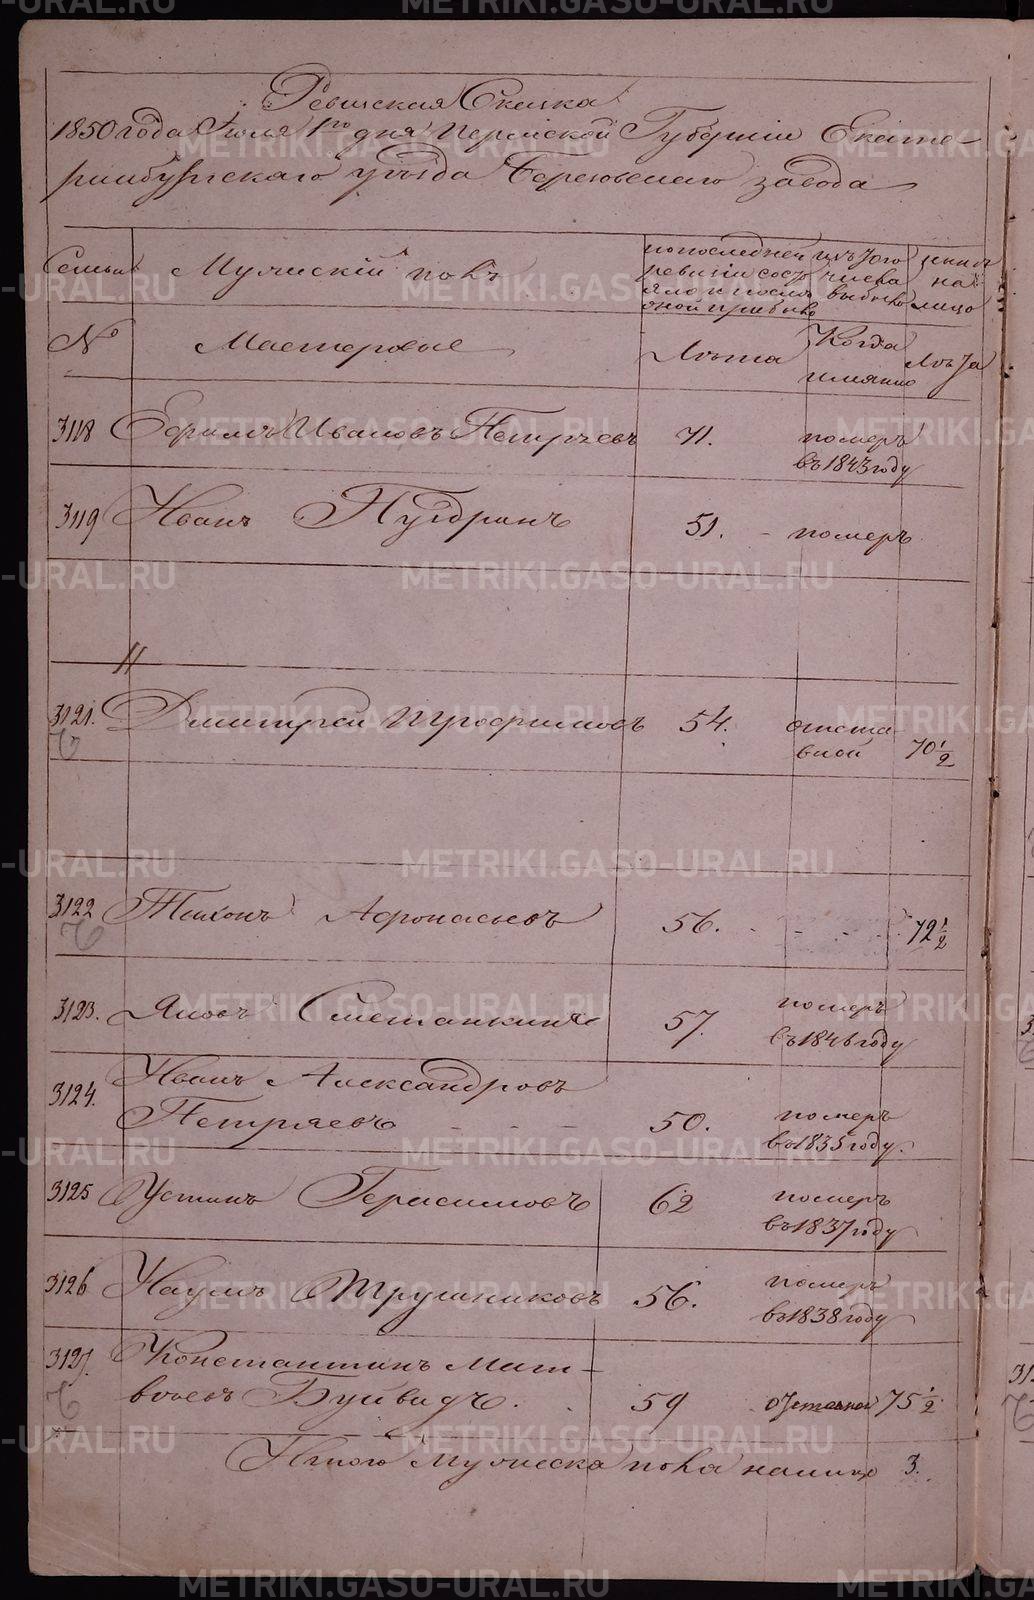 Ревизская Сказка
1850 года Июля 1го дня Пермской Губернии Екате-
ринбургскаго уезда Березовскаго завода
Семьи
Мужеский полъ
по последней
ревизии состо
яло и после
оной прибыло
изъ того
числа
выбыло
ныне
на
лицо
№
Мастеровые
Лета
Когда
имянно
Лета
3118 Ефимъ Ивановъ Петряевъ 71. померъ
въ 1843 году
3119 Иванъ 51. - померъ
3121. Дмитрей Трофимовъ 54. отста
вной 70 1/2
3122 Тихонъ Афонасьевъ 56. - - - 72 1/2
3123. Яковъ Сметанкинъ 57. померъ
въ 1846 году
3124. Иванъ Александровъ
Петряевъ - - - 50. померъ
въ 1835 году.
3125 Устинъ Герасимовъ 62 померъ
въ 1837 году
3126 Наумъ Трушниковъ 56. померъ
въ 1838 году
3127. Константинъ Мат-
веевъ Буйвидъ. 59 отставной 75 1/2
Итого Мужеска пола налицо 3.
METRIKI.GASO-URAL.RU